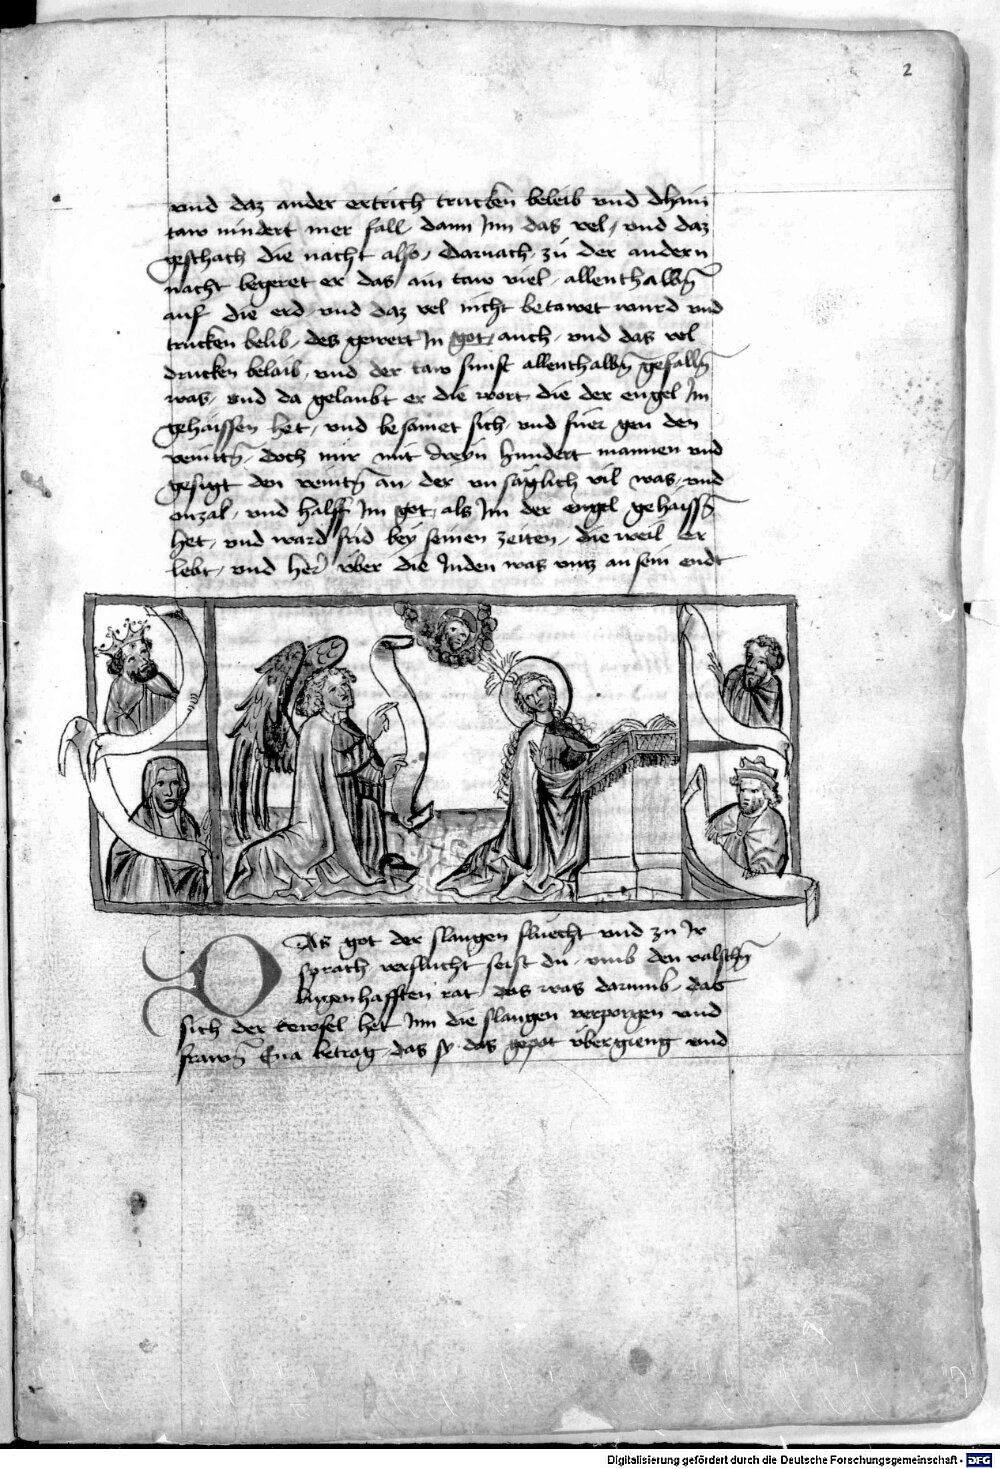 2
vnd daz ander ertrich trucken beleib vnd dhain
taw nindert mer fall dann jnn das vel, vnd daz
geschach die nacht also, darnach zu der andern
nacht begeret er das ain taw viel, allenthalbñ
auf die erd, vnd daz vel nicht betawet wurd vnd
trucken belib, des gewert jn got, auch, vnd das vel
drucken belaib, vnd der taw sunst allenthalbñ gefallñ
was, vnd da gelaubt er die wort die der engel jm
gehaissen het, vnd besamet sich, vnd fuer gen den
veintñ, doch nur mit dreyn hundert mannen vnd
gesigt den veintñ an, der vnsäglich vil was, vnd
onzal, vnd halff jm got, als jm der engel gehaissñ
het, vnd ward frid bey seinen zeiten, die weil er
lebt, vnd her über die Juden was vntz an sein endt
DAs got der slangen fluecht vnd zu Jr
sprach verflucht seist du, vmb den valschñ
lugenhafften rat, das was darumb, das
sich der tewfel het jnn die slangen verporgen vnd
frawñ Eua betrog, das sy das gepot übergieng vnd
Digitalisierung gefördert durch die Deutsche Forschungsgemeinschaft - DFG